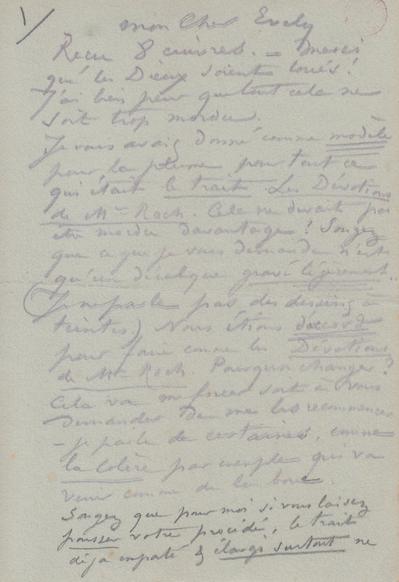 mon cher Evely
Recu 8 cuivres. = merci
que les Dieux soient loués!
J'ai bien peur que tout cela ne
soit trop mordu.
Je vous avais donné comme modèle
pour la plume pour tout ce
qui était le trait. Les Dévotions
de Mme Roch. Cela ne devait pas
être mordu davantage! Songez
que ce que je vous demande n'est
qu'un décalque gravé légèrement.
(Je ne parle pas des dessins à
teintes) Nous étions d'accord
pour faire comme les Dévotions
de Mme Roch. Pourquoi changer?
Cela va me forcer soit à vous
demander de me les recommencer
- je parle de certaines, comme
la Colère par exemple qui va
venir comme de la boue.
Songez que pour moi si vous laissez
pousser votre procédé, le trait
déjà empâté & élargi surtout ne